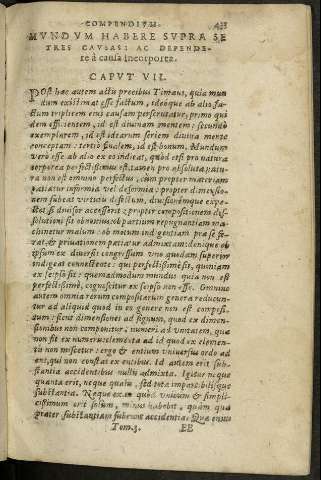 COMPENDIVM. 433
MVNDVM HABERE SVPRA SE
TRES CAVSAS: AC DEPENDE-
re à causa incorporea.
CAPVT VII.
POst hæc autem actis precibus Timæus, quia mun
dum existimat esse factum, ideóque ab alio fa-
ctum triplicem eius causam perscrutatur, primo qui
dem efficientem, id est diuinam mentem: secundo
exemplarem, id est idearum seriem diuina mente
conceptam: tertio finalem, id est bonum. Mundum
verò esse ab alio ex eo indicat, quòd etsi pro natura
corporea perfectissimus est, tamen pro absoluta na-
tura non est omnino perfectus, cùm propter materiam
patiatur informia vel deformia: propter dimensio-
nem subeat virtutis defectum, diuisionémque expe-
ctet si diuisor accesserit: propter compositionem dis-
solutioni sit obnoxius, ob partium repugnantiam ma-
chinetur malum: ob motum indigentiam præ se fe-
rat, & priuationem patiatur admixtam: denique ob
ipsum ex diuersis congressum vno quodam superiori
indigeat connectente: qui perfectissimè sit, quoniam
ex seipso sit: quemadmodum mundus quia non est
perfectissimè, cognoscitur ex seipso non esse. Omnino
autem omnia rerum compositarum genera reducun-
tur ad aliquid quod in eo genere non est composi-
tum: sicut dimensiones ad signum, quod ex dimen-
sionibus non componitur, numeri ad vnitatem, quæ
non fit ex numeris: elementa ad id quod ex elemen-
tis non miscetur: ergo & entium vniuersus ordo ad
ens, quod non constat ex entibus. Id autem erit sub-
stantia accidentibus nullis admixta. Igitur neque
quanta erit, neque qualis, sed tota impartibilisque
substantia. Neque ex eo quòd vnicum & simpli-
cissimum erit solum, minus habebit, quàm quæ
præter substantiam subeunt accidentia. Quæ enim
Tom.3. EE